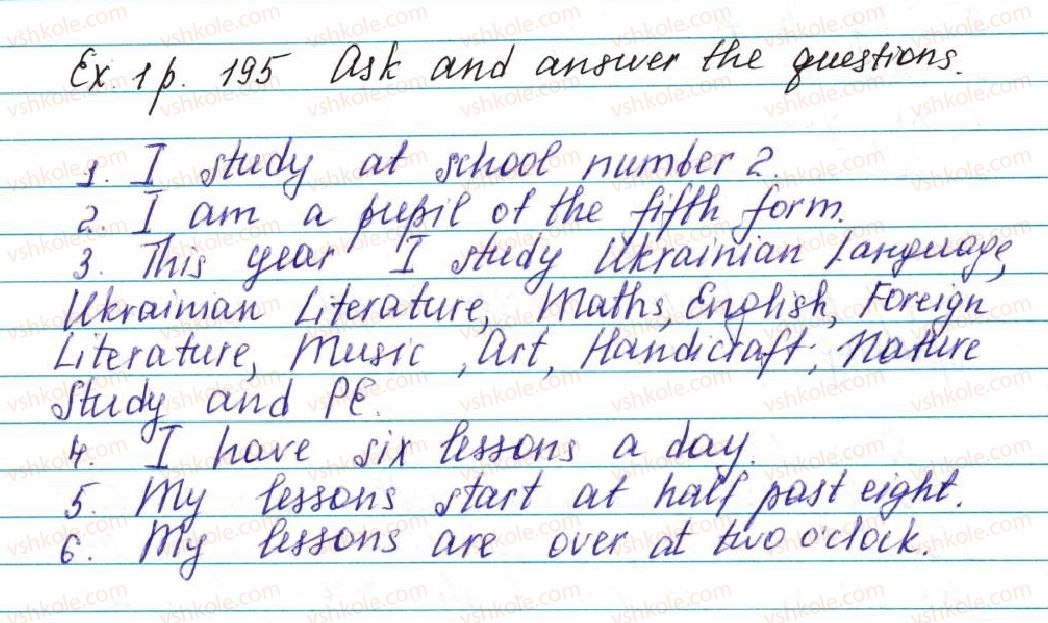 Ex. 1 p. 195 Ask and answer the questions.
1. I study at school number 2.
2. I am a pupil of the fifth form.
3. This year I study Ukrainian Language,
Ukrainian Literature, Maths, English, Foreign
Literature, Music, Art, Handicraft, Nature
Study and PE.
4. I have six lessons a day.
5. My lessons start at half past eight.
6. My lessons are over at two o'clock.